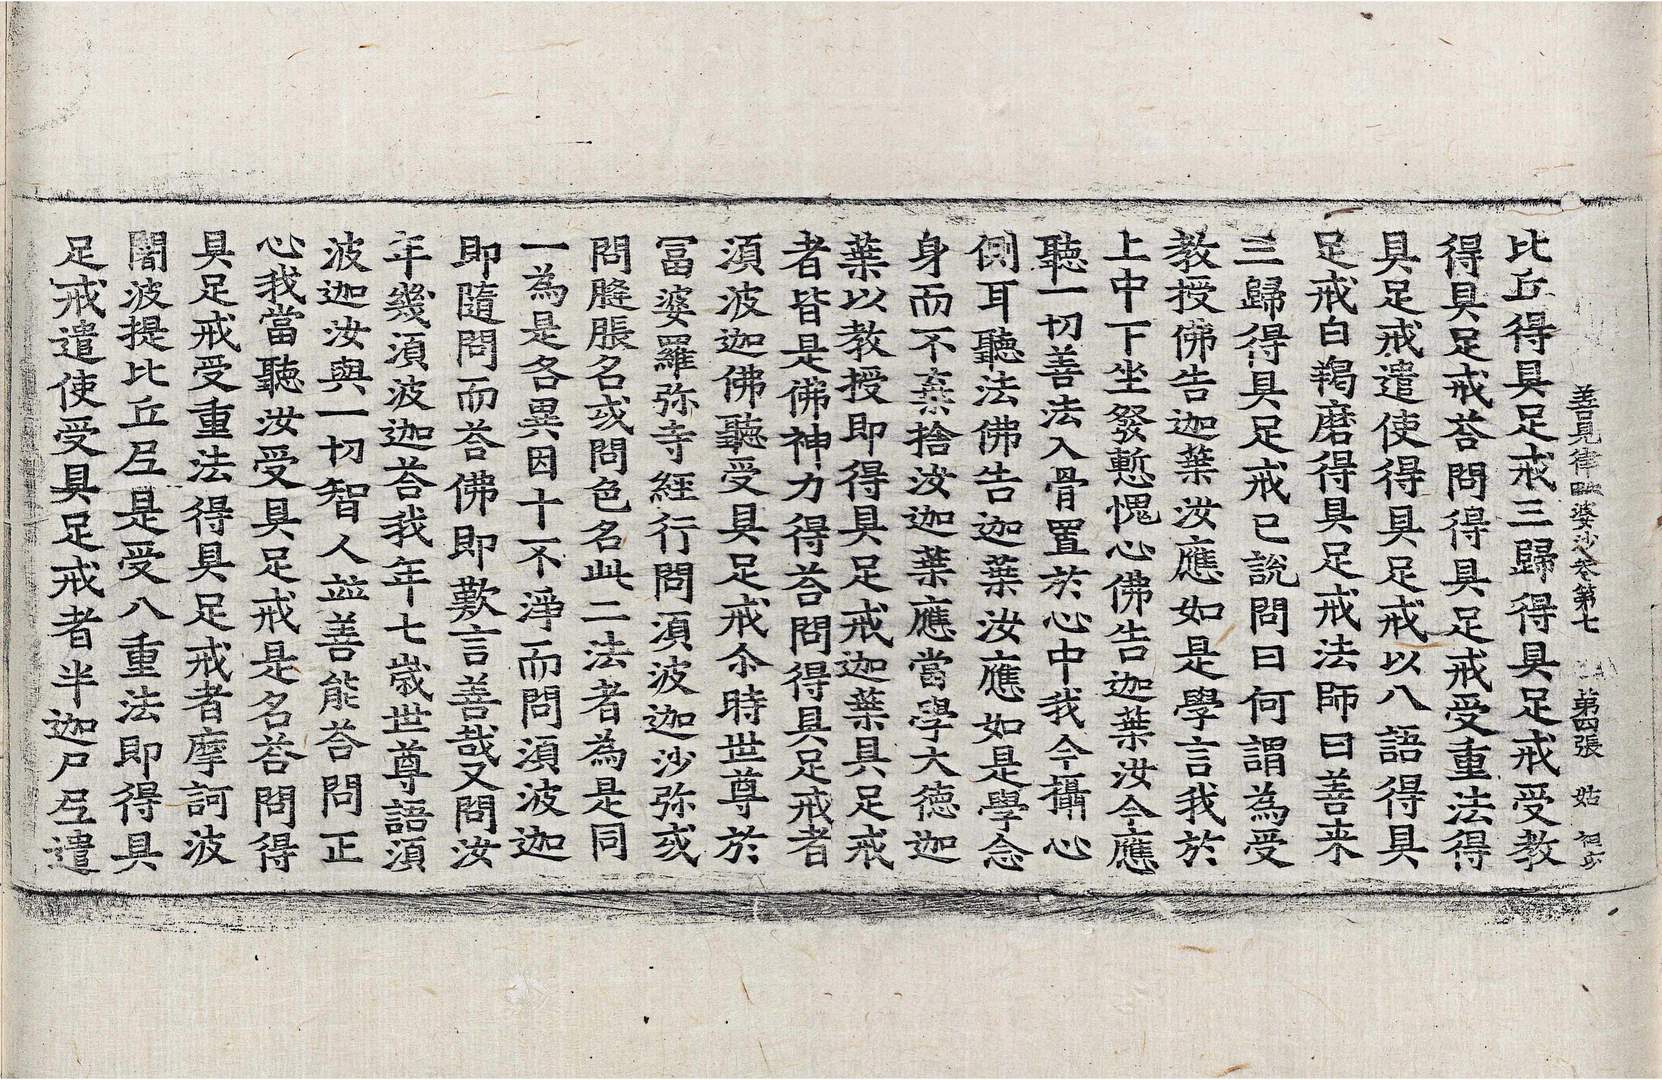 善見律毗婆沙卷第七 第四張 姑
比丘得具足戒三歸得具足戒受教
得具足戒荅問得具足戒受重法得
具足戒遣使得具足戒以八語得具
足戒白羯磨得具足戒法師曰善来
三歸得具足戒已說問曰何謂為受
教授佛告迦葉汝應如是學言我於
上中下坐發慙愧心佛告迦葉汝今應
聽一切善法入骨置於心中我今攝心
側耳聽法佛告迦葉汝應如是學念
身而不棄捨汝迦葉應當學大德迦
葉以教授即得具足戒迦葉具足戒
者皆是佛神力得荅問得具足戒者
湏波迦佛聽受具足戒尒時世尊於
冨婆羅弥寺經行問湏波迦沙弥或
問膖脹名或問色名此二法者為是同
一為是各異因十不淨而問湏波迦
即隨問而荅佛即歎言善哉又問汝
年幾湏波迦荅我年七歲世尊語湏
波迦汝與一切智人並善能荅問正
心我當聽汝受具足戒是名荅問得
具足戒受重法得具足戒者摩訶波
闍波提比丘尼是受八重法即得具
足戒遣使受具足戒者半迦尸尼遣